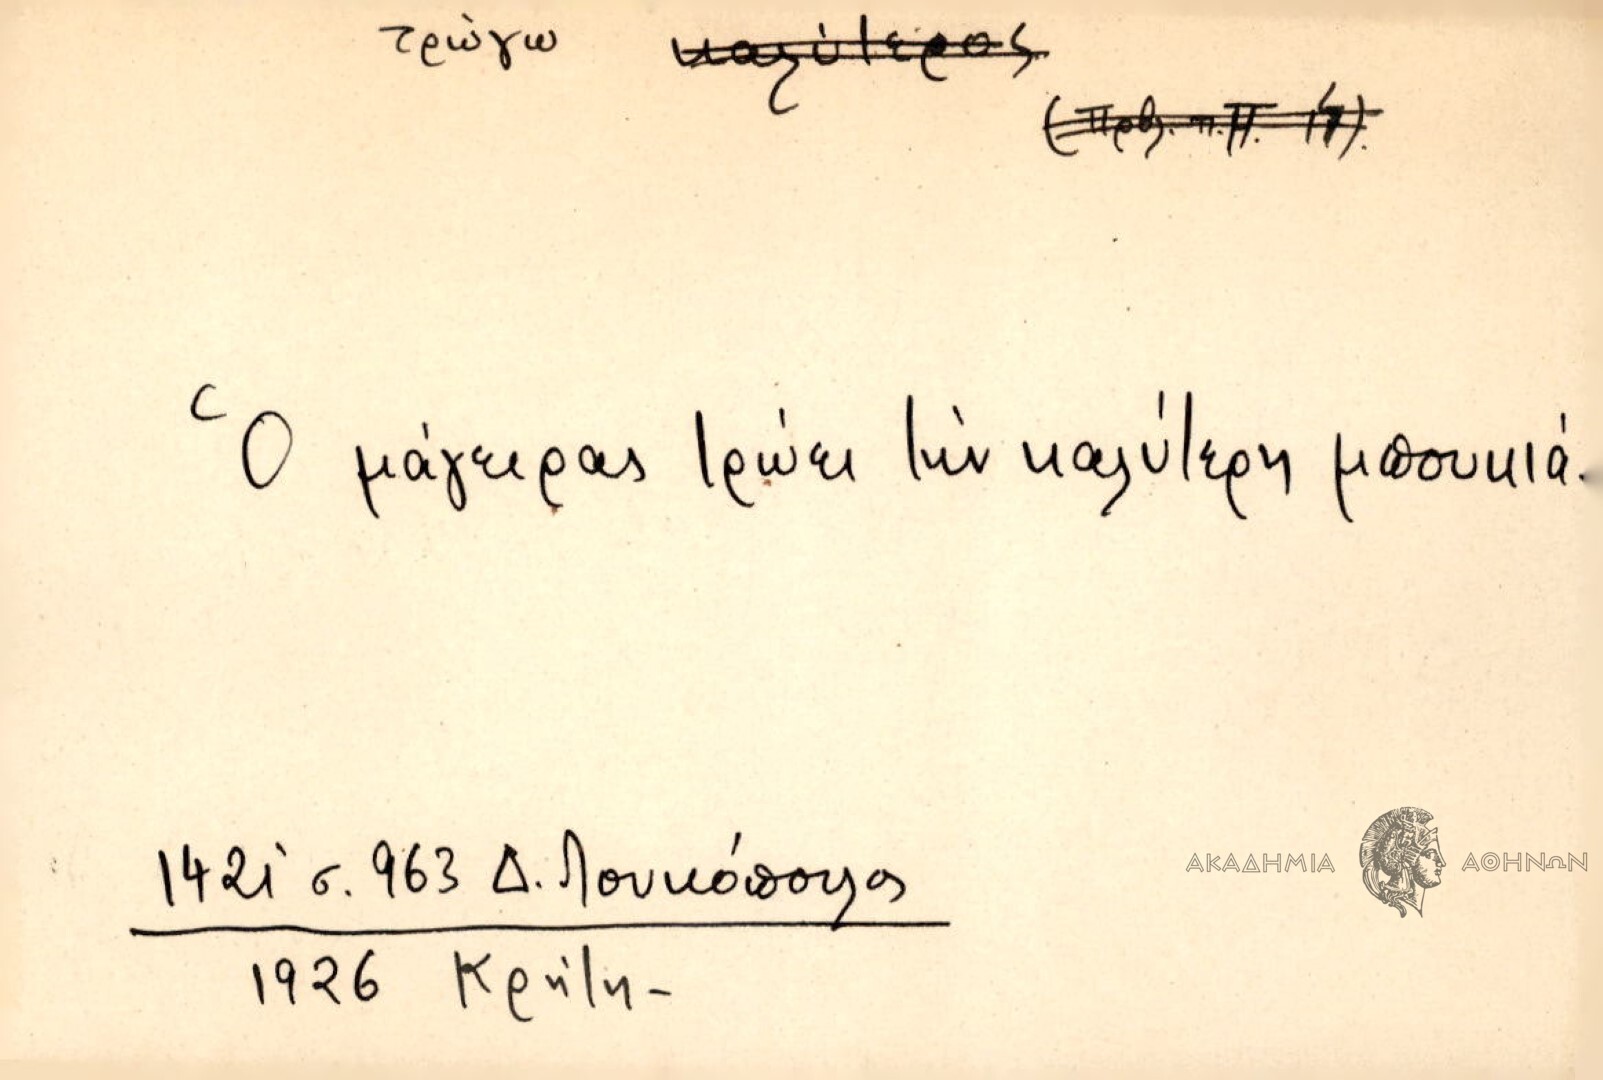 τρώγω καλύτερος
Ὁ μάγειρας τρώει τὴν καλύτερη μπουκιά.
1421 σ. 963 Δ. Λουκόπουλος
1926 Κρήτη -
ΑΚΑΔΗΜΙΑ ΑΘΗΝΩΝ